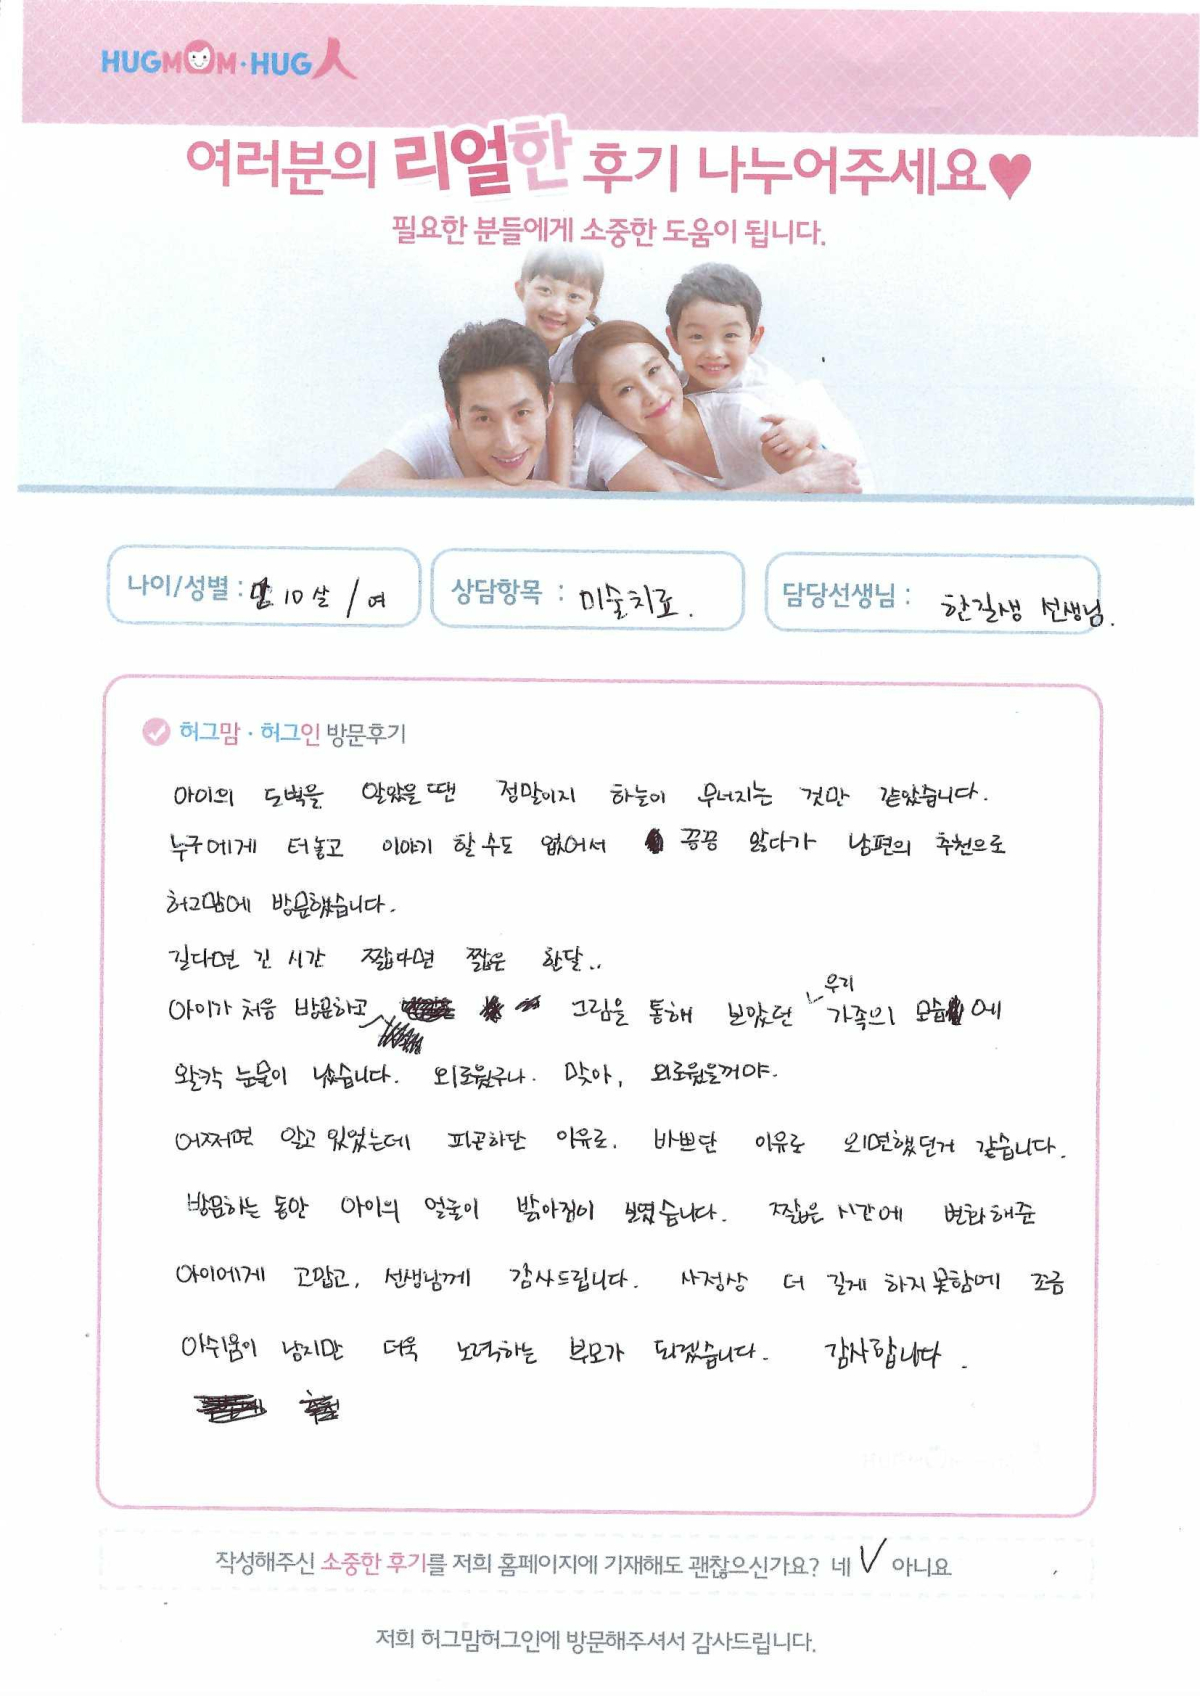 HUGMOM·HUG人
여러분의 리얼한 후기 나누어주세요♥
필요한 분들에게 소중한 도움이 됩니다.
나이/성별 : 만 10살 / 여
상담항목 : 미술치료.
담당선생님 : 한길생 선생님.
허그맘 · 허그인 방문후기
아이의 도벽을 알았을땐 정말이지 하늘이 무너지는 것만 같았습니다.
누구에게 터놓고 이야기 할 수도 없어서 끙끙 앓다가 남편의 추천으로
허그맘에 방문했습니다.
길다면 긴 시간 짧다면 짧은 한달..
아이가 처음 방문하고 그림을 통해 보았던 우리 가족의 모습에
왈칵 눈물이 났습니다. 외로웠구나. 맞아, 외로웠을꺼야.
어쩌면 알고 있었는데 피곤하단 이유로. 바쁘단 이유로 외면했던거 같습니다.
방문하는 동안 아이의 얼굴이 밝아짐이 보였습니다. 짧은 시간에 변화해준
아이에게 고맙고, 선생님께 감사드립니다. 사정상 더 길게 하지 못함에 조금
아쉬움이 남지만 더욱 노력하는 부모가 되겠습니다. 감사합니다.
작성해주신 소중한 후기를 저희 홈페이지에 기재해도 괜찮으신가요? 네 V 아니요
저희 허그맘허그인에 방문해주셔서 감사드립니다.